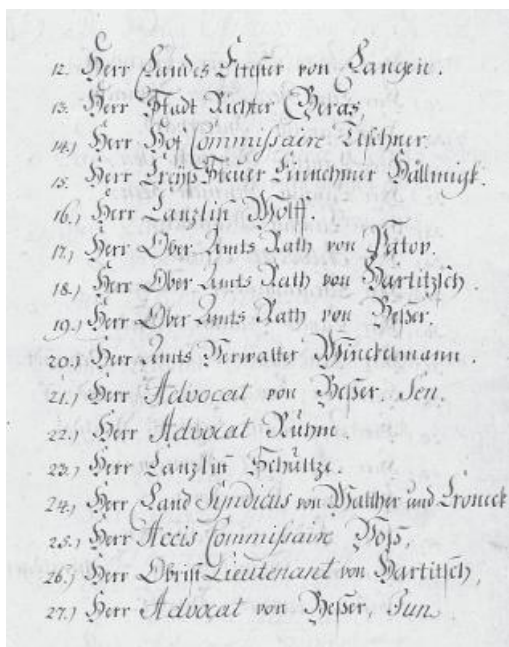 12. Herr Landes Eltester von Langen.
13. Herr Stadt Richter Geras,
14.) Herr Hof Commissaire Teschner.
15. Herr Creyß Steuer Einnehmer Hällmigk.
16.) Herr Canzlist Wolff.
17.) Herr Ober Amts Rath von Pator.
18.) Herr Ober Amts Rath von Hartitzsch.
19.) Herr Ober Amts Rath von Beßer.
20.) Herr Amts Verwalter Winckelmann.
21.) Herr Advocat von Beßer, Sen.
22.) Herr Advocat Kühne.
23.) Herr Canzlist Schültze.
24.) Herr Land Syndicus von Walther und Croneck
25.) Herr Accis Commissaire Voß,
26.) Herr Obrist Lieutenant von Hartitsch,
27.) Herr Advocat von Beßer, Jun.